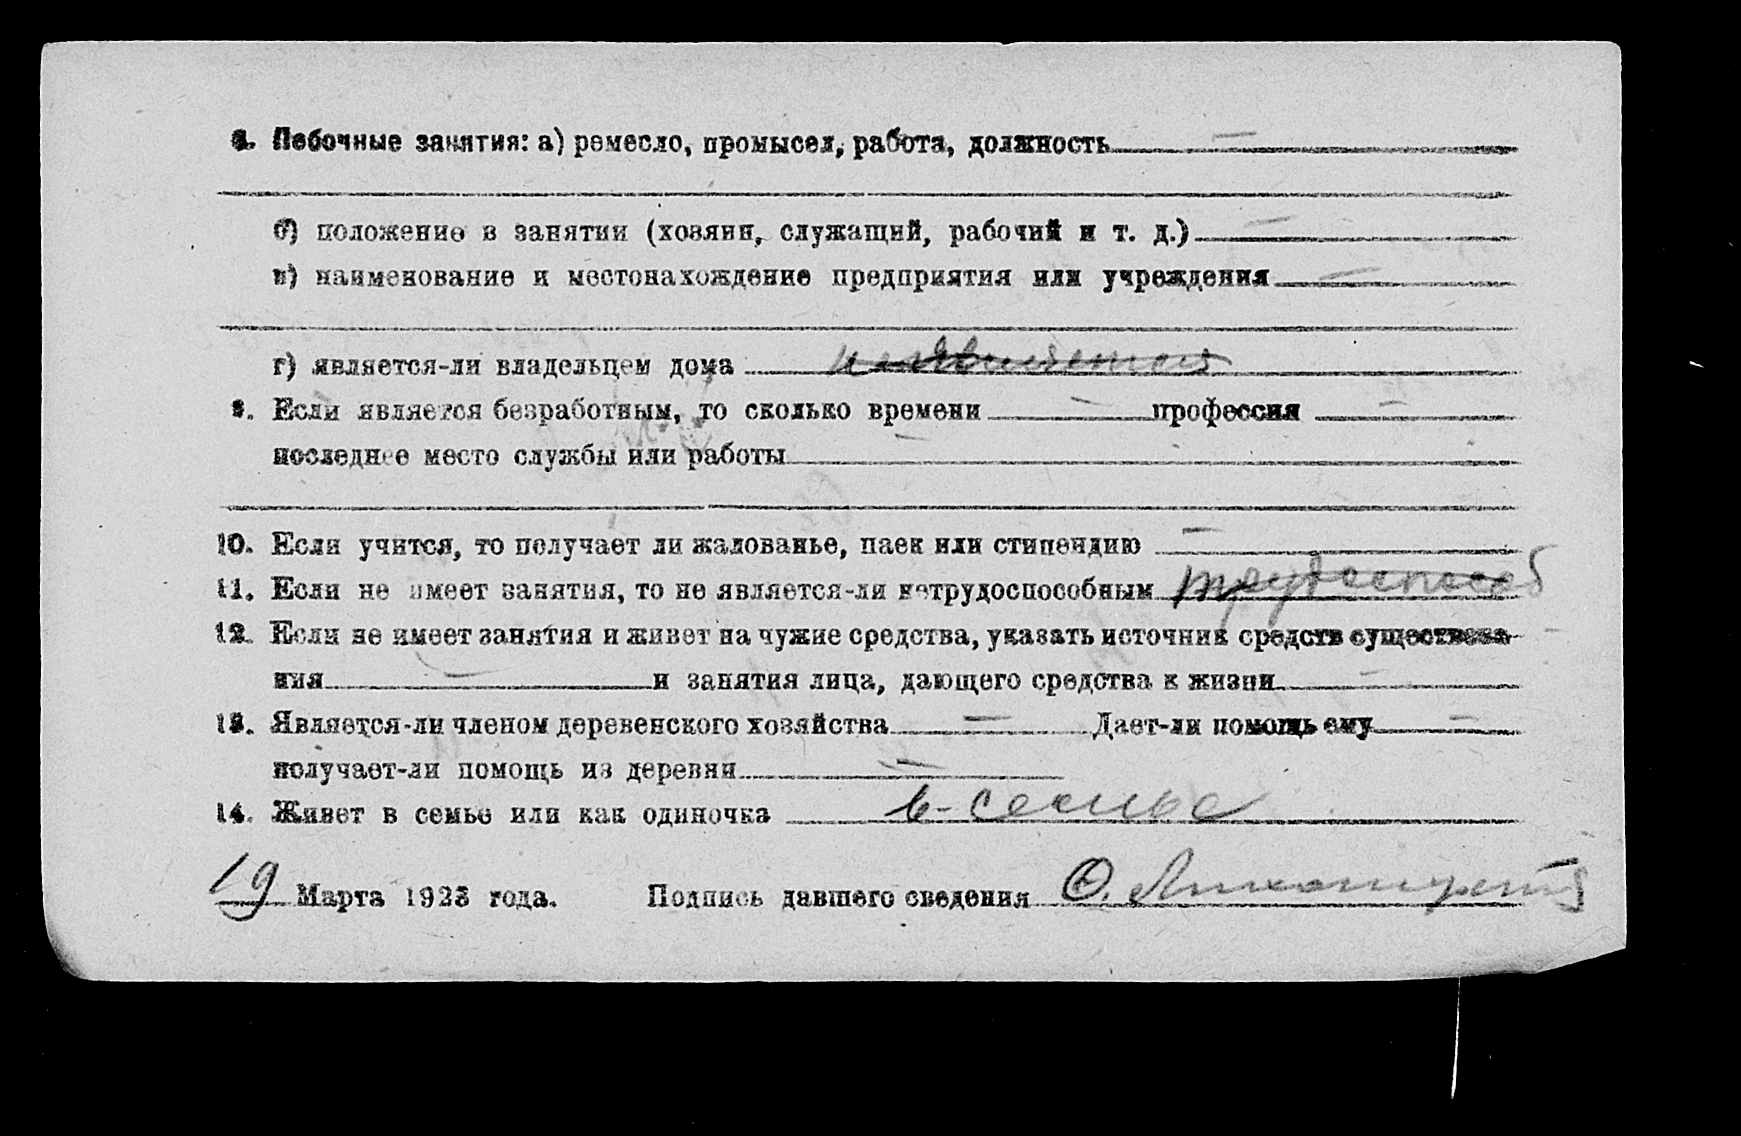 8. Побочные занятия: а) ремесло, промысел, работа, должность —
б) положение в занятии (хозяин, служащий, рабочий и т. д.) —
в) наименование и местонахождение предприятия или учреждения —
г) является-ли владельцем дома не является
9. Если является безработным, то сколько времени — профессия —
последнее место службы или работы —
10. Если учится, то получает ли жалованье, паек или стипендию —
11. Если не имеет занятия, то не является-ли нетрудоспособным трудоспособ
12. Если не имеет занятия и живет на чужие средства, указать источник средств существова-
ния — и занятия лица, дающего средства к жизни —
13. Является-ли членом деревенского хозяйства — Дает-ли помощь ему —
получает-ли помощь из деревни —
14. Живет в семье или как одиночка в-семье
19 Марта 1923 года. Подпись давшего сведения О.